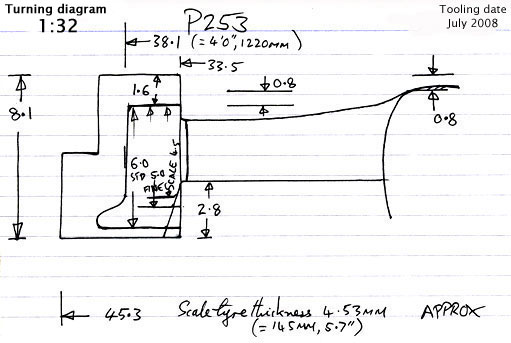 Turning diagram
1:32
P253
Tooling date
July 2008
38.1 (= 4'0", 1220MM)
33.5
1.6
0.8
8.1
0.8
6.0
STD
5.0
FINE
SCALE 4.5
2.8
45.3
Scale tyre thickness 4.53MM
(= 145MM, 5.7")
APPROX